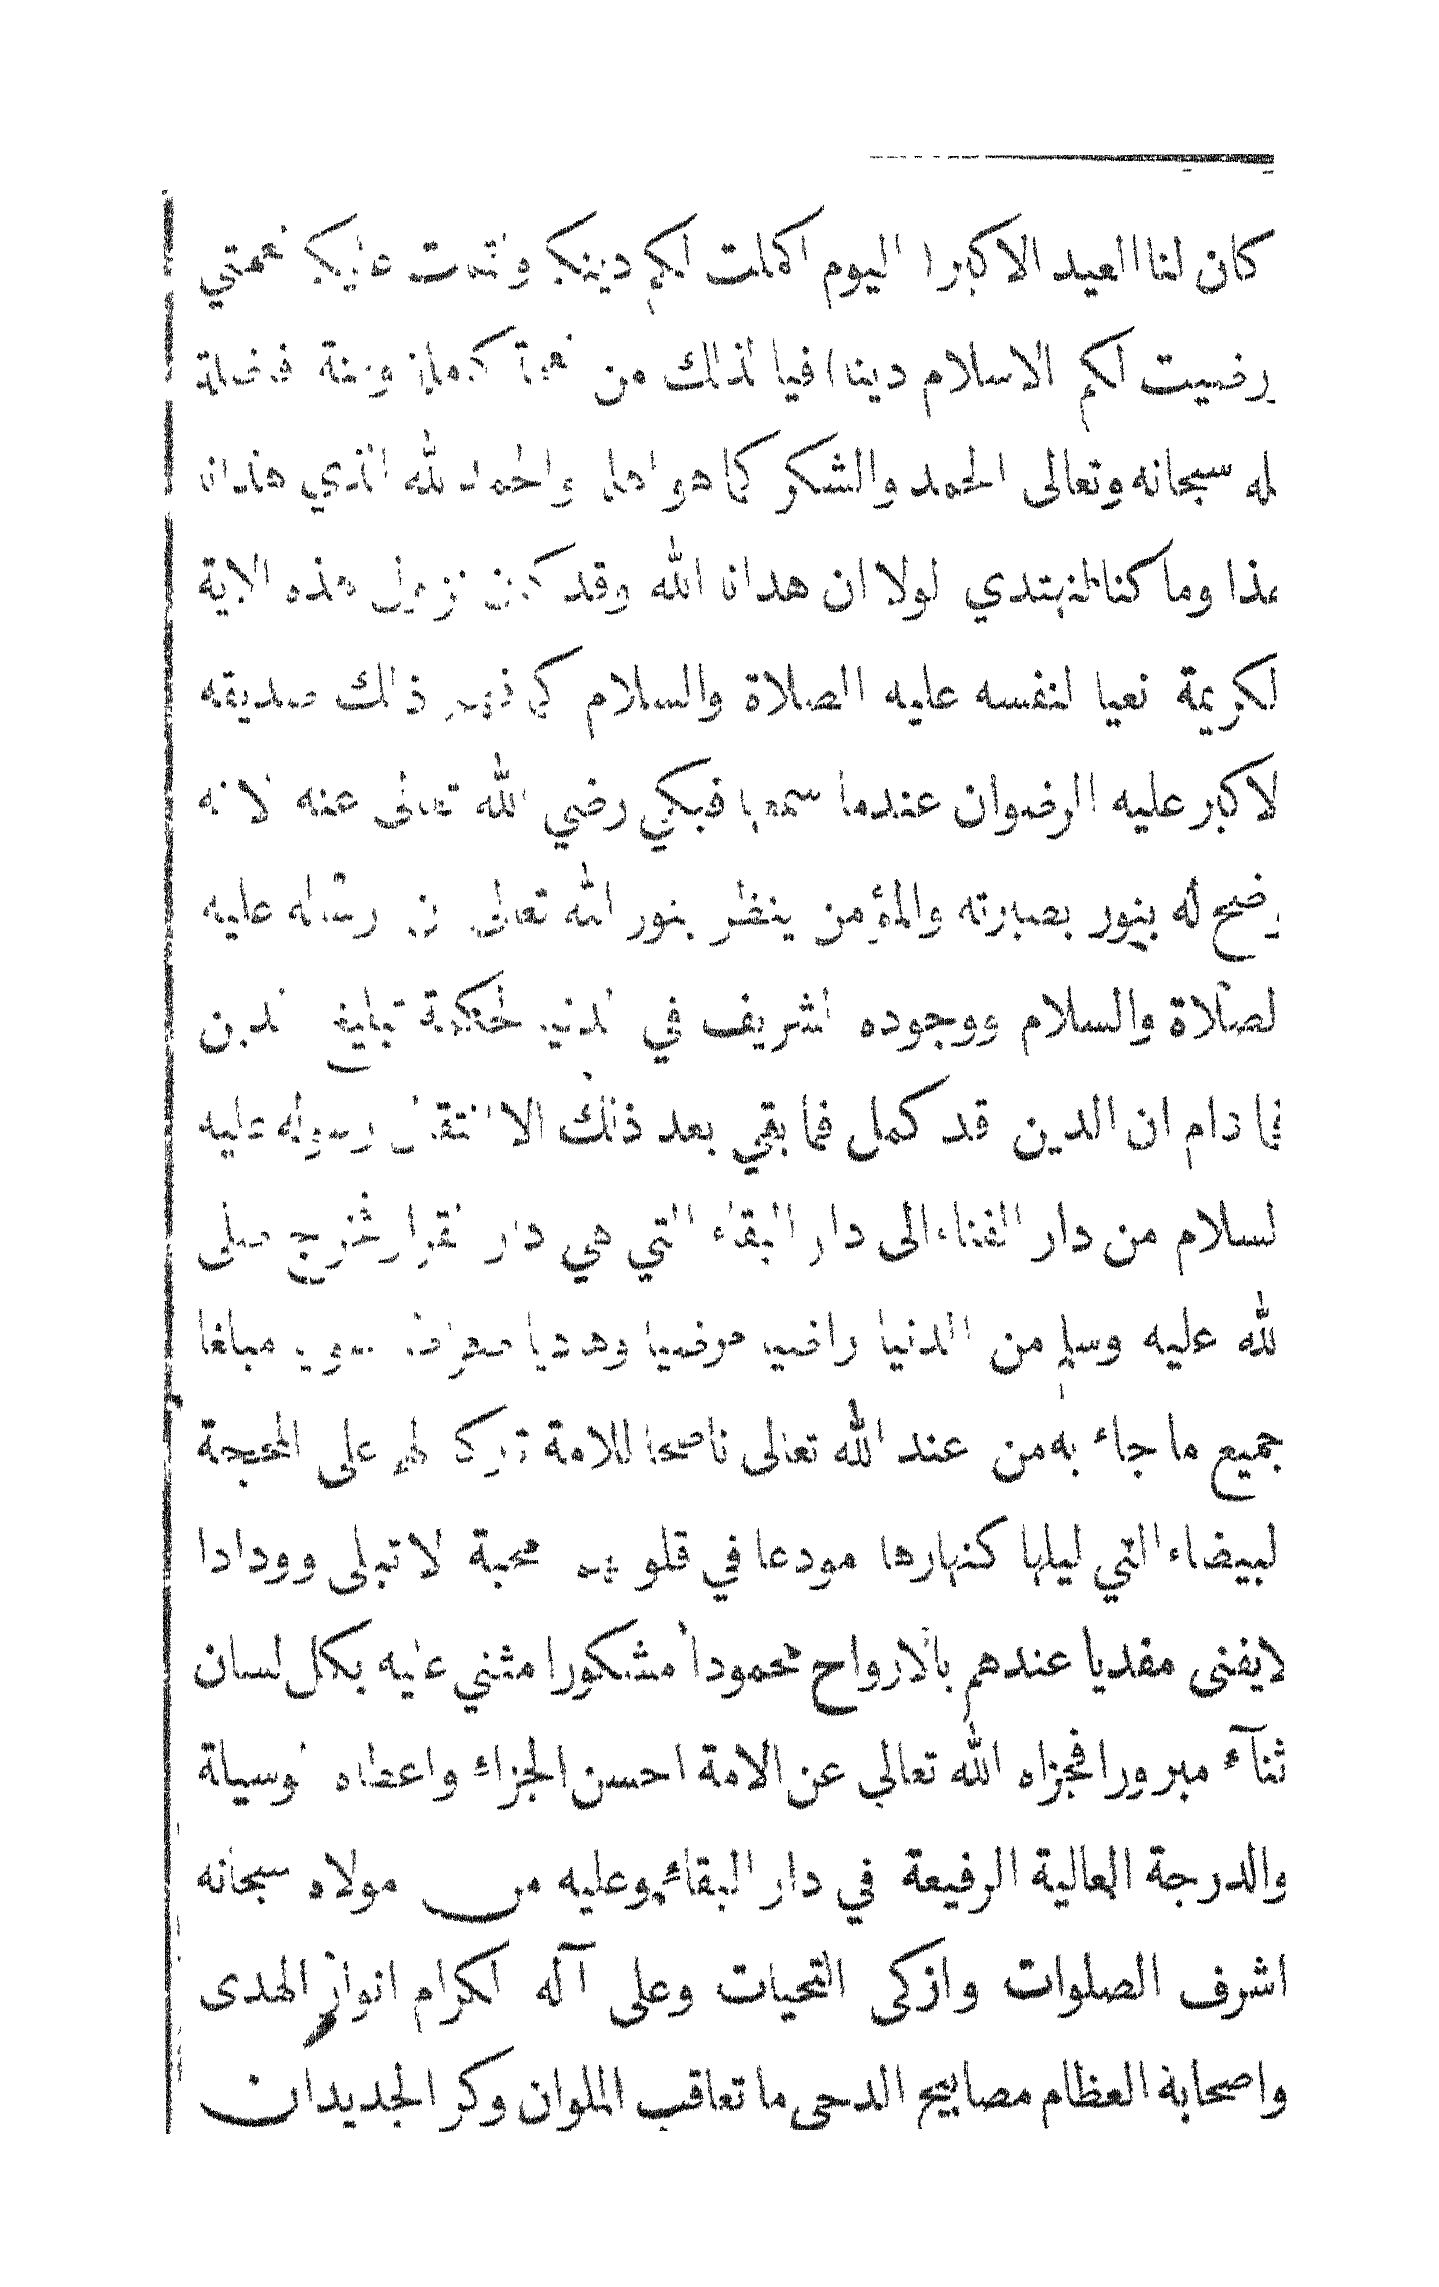 كان لنا العيد الاكبر (اليوم اكملت لكم دينكم واتممت عليكم نعمتي
ورضيت لكم الاسلام دينا) فيا لذلك من نعمة كاملة ومنة فاضلة
له سبحانه وتعالى الحمد والشكر كما هو اهله والحمد لله الذي هدانا
لهذا وما كنا لنهتدي لولا ان هدانا الله وقد كان نزول هذه الاية
لكريمة نعيا لنفسه عليه الصلاة والسلام كما فهم ذلك صديقه
لاكبر عليه الرضوان عندما سمعها فبكي رضي الله تعالى عنه لانه
وضح له بنور بصيرته والمؤمن ينظر بنور الله تعالى ان رساله عليه
لصلاة والسلام ووجوده الشريف في الدنيا لحكمة تبليغ الدين
فما دام ان الدين قد كمل فما بقي بعد ذلك الا انتقال رسوله عليه
لسلام من دار الفناء الى دار البقاء التي هي دار القرار فخرج صلى
لله عليه وسلم من الدنيا راضيا مرضيا وهاديا مبلغا
جميع ما جاء به من عند الله تعالى ناصحا للامة تركهم على المحجة
لبيضاء التي ليلها كنهارها مودعا في قلوبهم محبة لا تبلى وودادا
لايفنى مفديا عندهم بالارواح محمودا مشكورا مثني عليه بكل لسان
ثنآء مبرورا فجزاه الله تعالي عن الامة احسن الجزاء واعطاه الوسيلة
والدرجة العالية الرفيعة في دار البقاء وعليه من مولاه سبحانه
اشرف الصلوات وازكى التحيات وعلى آله الكرام انوار الهدى
واصحابة العظام مصابيح الدجى ما تعاقب الملوان وكر الجديدان